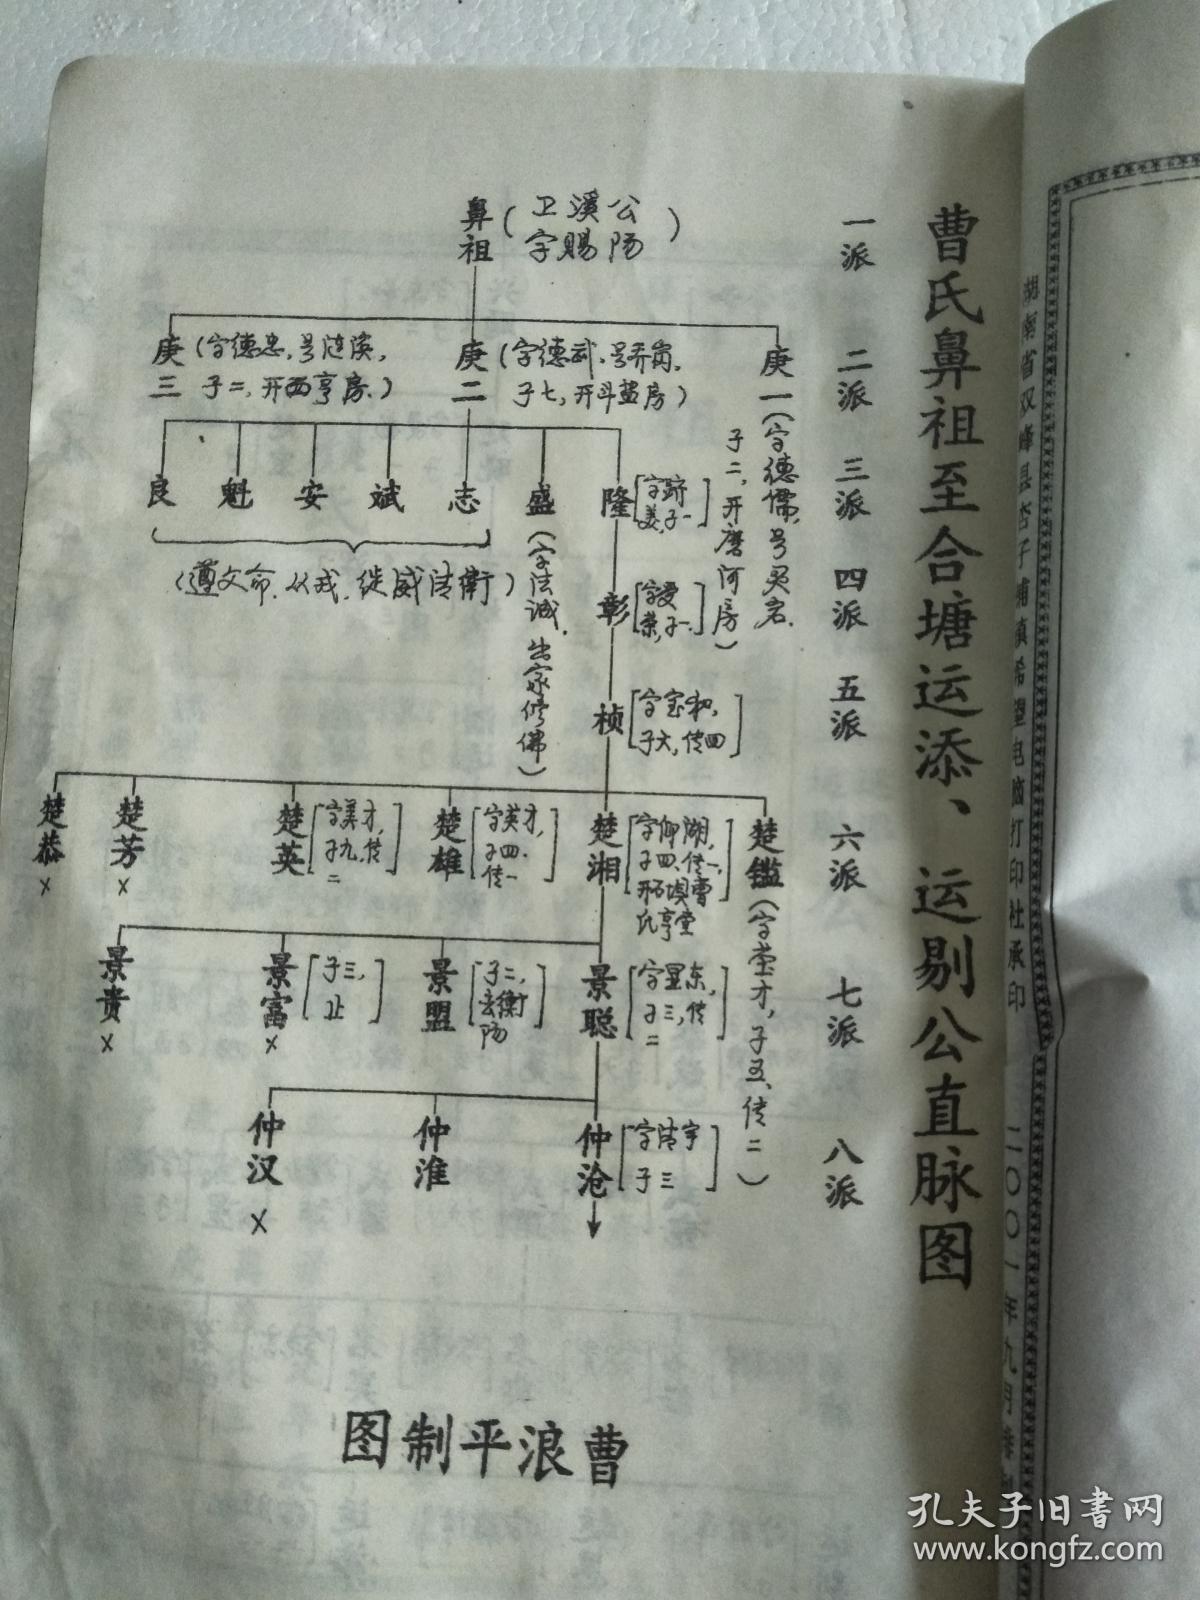 曹氏鼻祖至合塘运添、运剔公直脉图
一派
二派
三派
四派
五派
六派
七派
八派
鼻祖(卫溪公
字赐阳)
庚一(字德儒,号
子二,开磨河房)
庚二(字德武,号乔岗,
子七,开斗盐房)
庚三(字德忠,号涟溪,
子二,开西亨房.)
隆[字跻
美,子一]
盛(字法诚.出家修佛)
志
斌
安
魁
良
(遵文命.从戎.徙威清衛)
彰[字爱
棠,子一.]
桢[字宝初,
子六,传四]
楚鑑(字莹才,子五、传二)
楚湘[字仰湖,
子四、传一,
开石坝曹
氏亨堂]
楚雄[字英才,
子四.
传一]
楚英[字美才,
子九,传
二]
楚芳×
楚恭×
景聪[字星东,
子三,传
二]
景盟[子二,
去衡
阳]
景富[子三,
止]×
景贵×
仲沧[字清宇
子三]
仲淮
仲汉×
图制平浪曹
湖南省双峰县杏子铺镇希望电脑打印社承印
二〇〇一年九月
孔夫子旧书网
www.kongfz.com